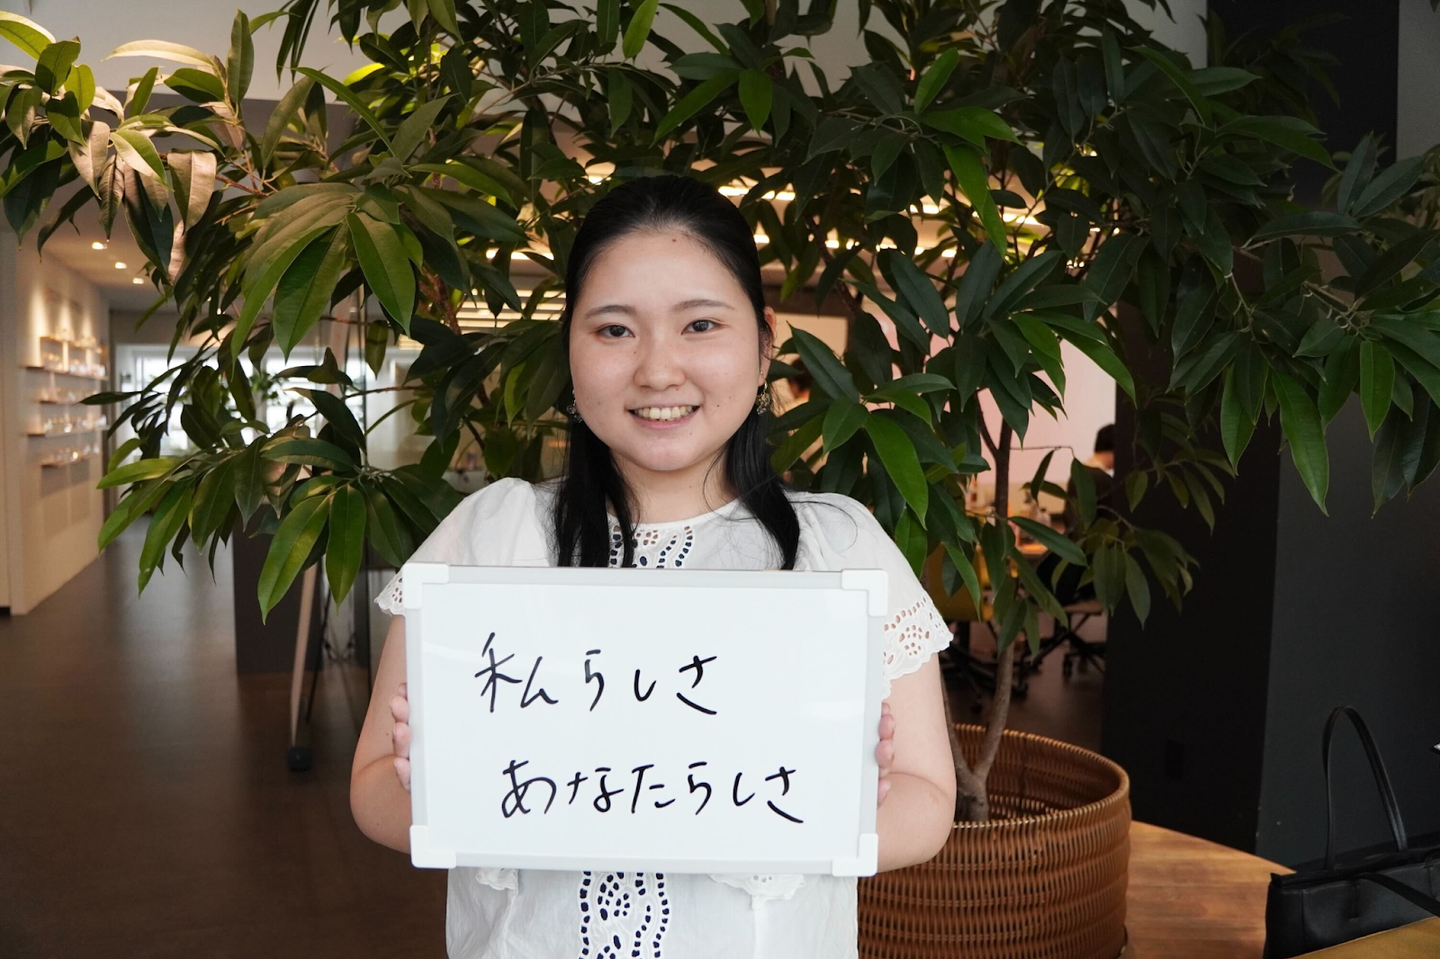 私らしさ
あなたらしさ